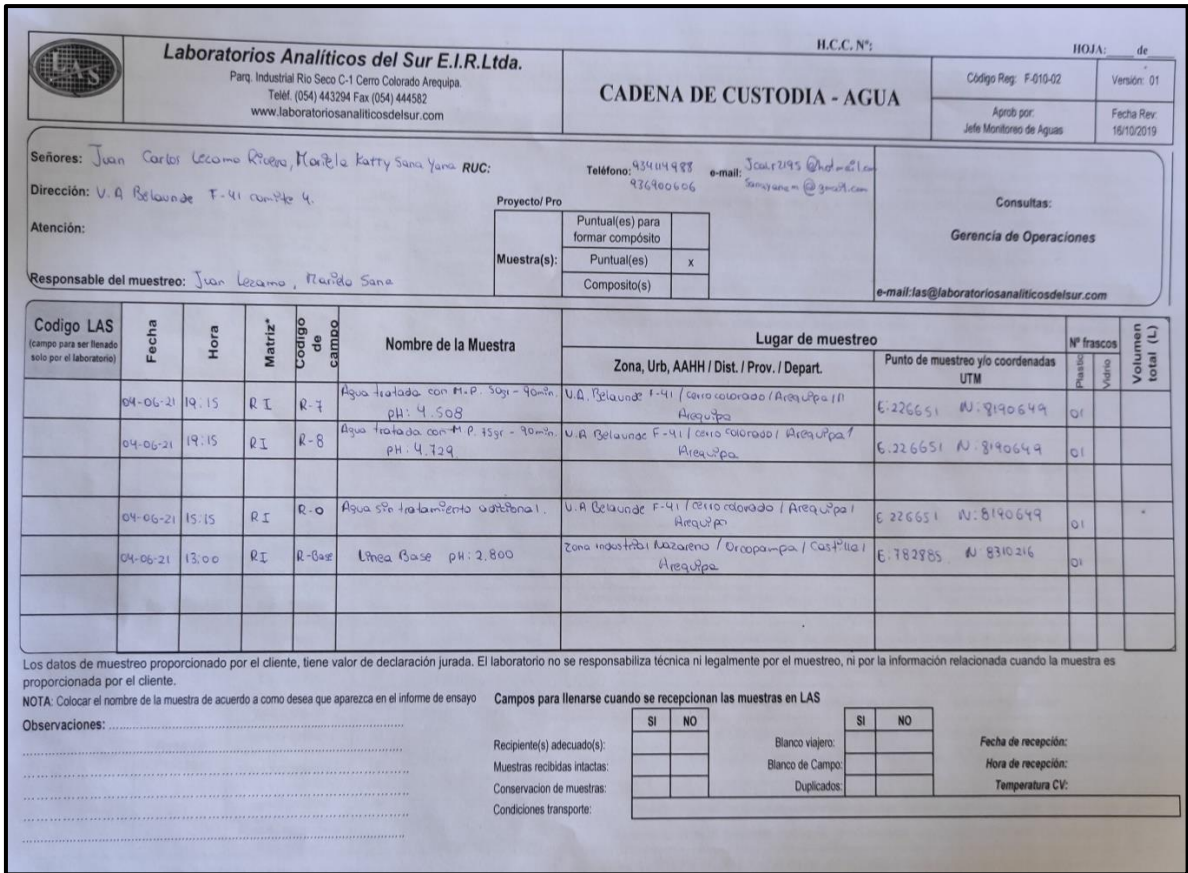 H.C.C. Nº:
HOJA: ___ de ___
LAS
Laboratorios Analíticos del Sur E.I.R.Ltda.
Parq. Industrial Rio Seco C-1 Cerro Colorado Arequipa.
Teléf. (054) 443294 Fax (054) 444582
www.laboratoriosanaliticosdelsur.com
CADENA DE CUSTODIA - AGUA
Código Reg: F-010-02
Versión: 01
Aprob por:
Jefe Monitoreo de Aguas
Fecha Rev:
16/10/2019
Señores: Juan Carlos Lezama Rivero, Mariela Katty Sana Yana RUC:
Teléfono: 934114988
936900606
e-mail:
@hotmail.com
@gmail.com
Dirección: V.A Belaunde F-41 comite 4.
Atención:
Responsable del muestreo: Juan Lezama, Sana
Proyecto/ Pro
Muestra(s):
Puntual(es) para
formar compósito
Puntual(es) x
Composito(s)
Consultas:
Gerencia de Operaciones
e-mail:las@laboratoriosanaliticosdelsur.com
Codigo LAS
(campo para ser llenado
solo por el laboratorio)
Fecha
Hora
Matriz*
Código de campo
Nombre de la Muestra
Lugar de muestreo
Zona, Urb, AAHH / Dist. / Prov. / Depart.
Punto de muestreo y/o coordenadas
UTM
Nº frascos
Plastic
Vidrio
Volumen total (L)
04-06-21 19:15 RI R-7 Agua tratada con M.P. 50gr - 90min. V.A. Belaunde F-41 / cerro colorado / Arequipa /
pH: 4.508 Arequipa E:226651 N:8190649 01
04-06-21 19:15 RI R-8 Agua tratada con M.P. 75gr - 90min. V.A Belaunde F-41 / cerro colorado / Arequipa /
pH: 4.729 Arequipa E:226651 N:8190649 01
04-06-21 15:15 RI R-0 Agua sin tratamiento aditional. V.A Belaunde F-41 / cerro colorado / Arequipa /
Arequipa E 226651 N:8190649 01
04-06-21 13:00 RI R-Base Línea Base pH: 2.800 Zona industrial Nazareno / Orcopampa / Castilla /
Arequipa E:782885 N 8310216 01
Los datos de muestreo proporcionado por el cliente, tiene valor de declaración jurada. El laboratorio no se responsabiliza técnica ni legalmente por el muestreo, ni por la información relacionada cuando la muestra es
proporcionada por el cliente.
NOTA: Colocar el nombre de la muestra de acuerdo a como desea que aparezca en el informe de ensayo
Campos para llenarse cuando se recepcionan las muestras en LAS
Observaciones:
SI NO
SI NO
Recipiente(s) adecuado(s):
Blanco viajero:
Fecha de recepción:
Muestras recibidas intactas:
Blanco de Campo:
Hora de recepción:
Conservacion de muestras:
Duplicados:
Temperatura CV:
Condiciones transporte: